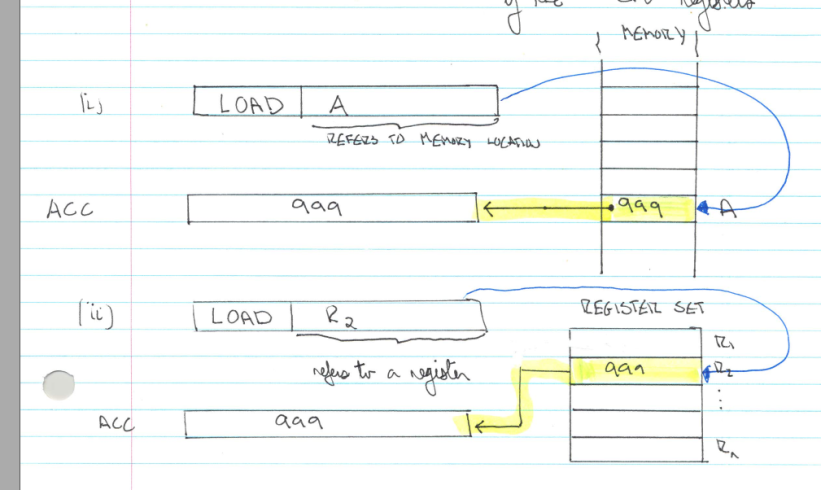 registers
MEMORY
(i) LOAD A
REFERS TO MEMORY LOCATION
ACC 999 999 A
(ii) LOAD R2 REGISTER SET
R1
refers to a register 999 R2
⋮
ACC 999
Rn